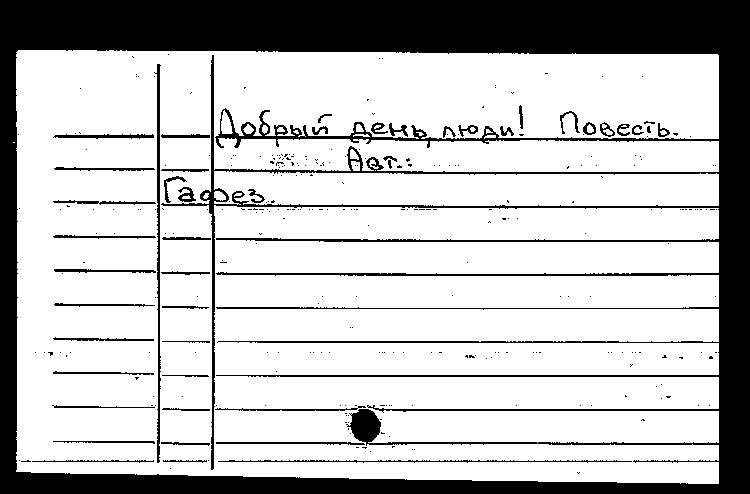 Добрый день, люди! Повесть.
Авт.:
Гафез.